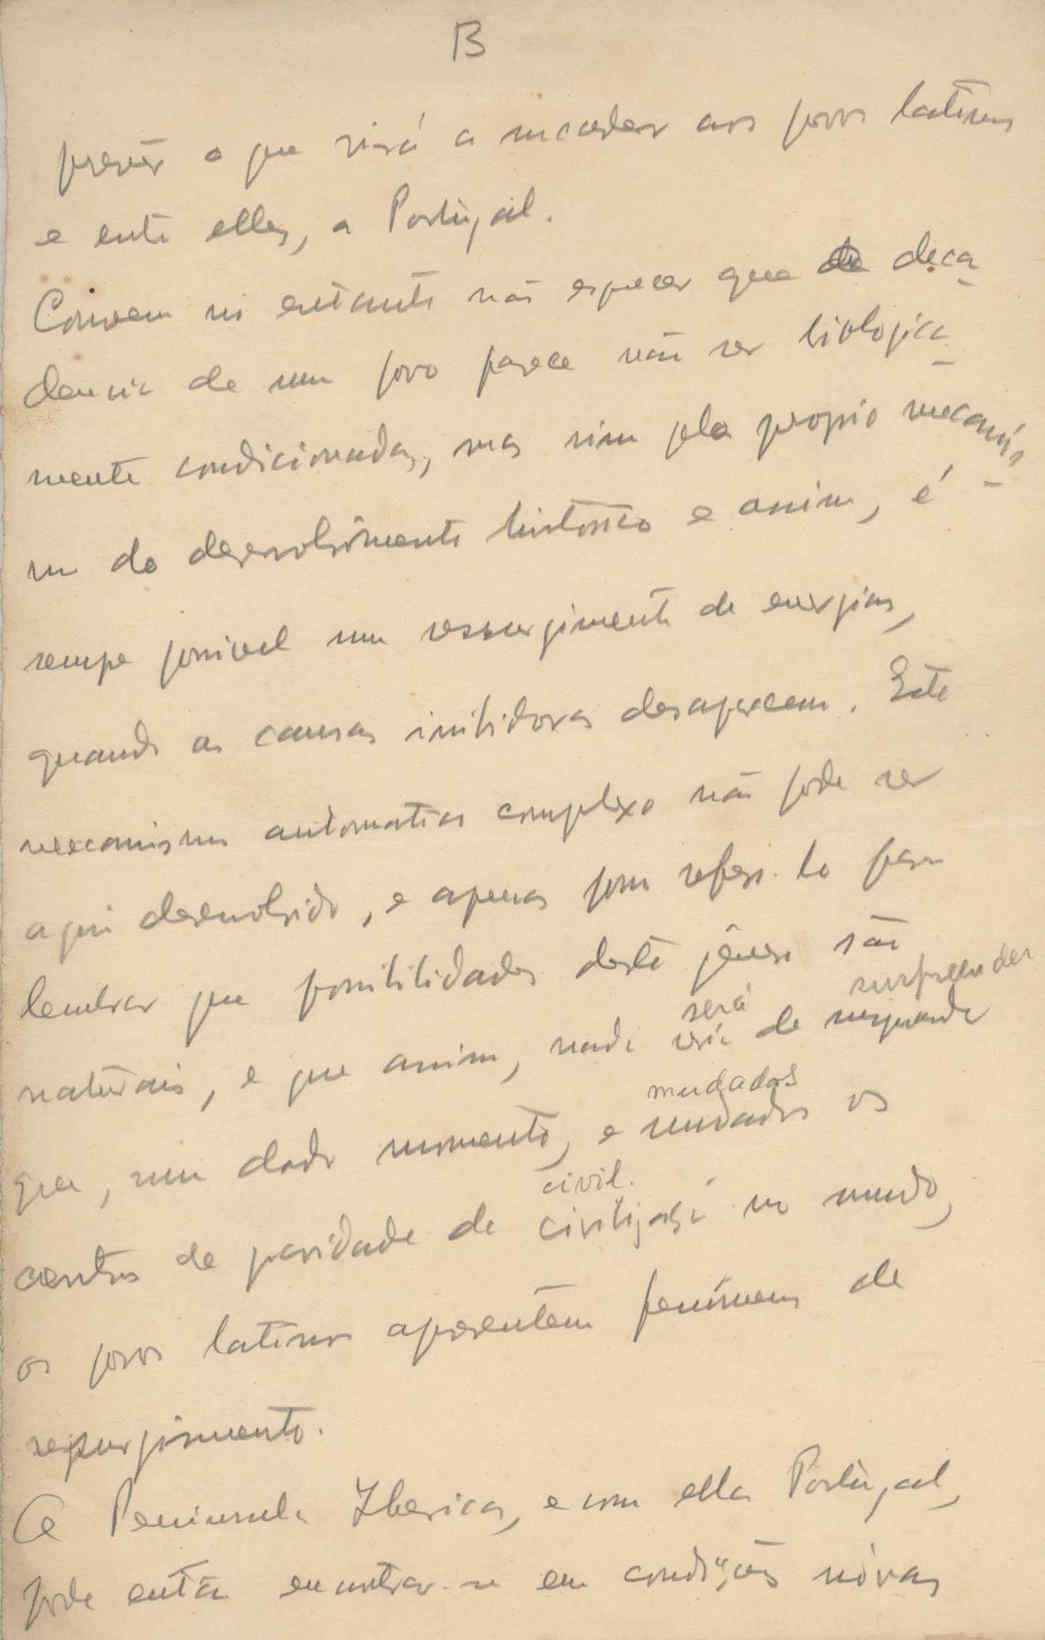 B
prever o que virá a suceder aos povos latinos
e entre elles, a Portugal.
Convem no entanto não esquecer que de deca-
dencia de um povo parece não ser biologica-
mente condicionada, mas sim pelo proprio mecanis-
mo do desenvolvimento historico e assim, é
sempre possivel um ressurgimento de energias,
quando as causas inibidoras desaparecem. Este
mecanismo automatico complexo não pode ser
aqui desenvolvido, e apenas posso referi-lo para
lembrar que possibilidades deste género são
será surpreender
naturais, e que assim, nada será de surpreender
mudados
que, num dado momento, e mudados os
civil.
centros de gravidade de civilização no mundo,
os povos latinos apresentem fenómenos de
ressurgimento.
A Peninsula Iberica, e com ella Portugal,
pode então encontrar-se em condições nóvas